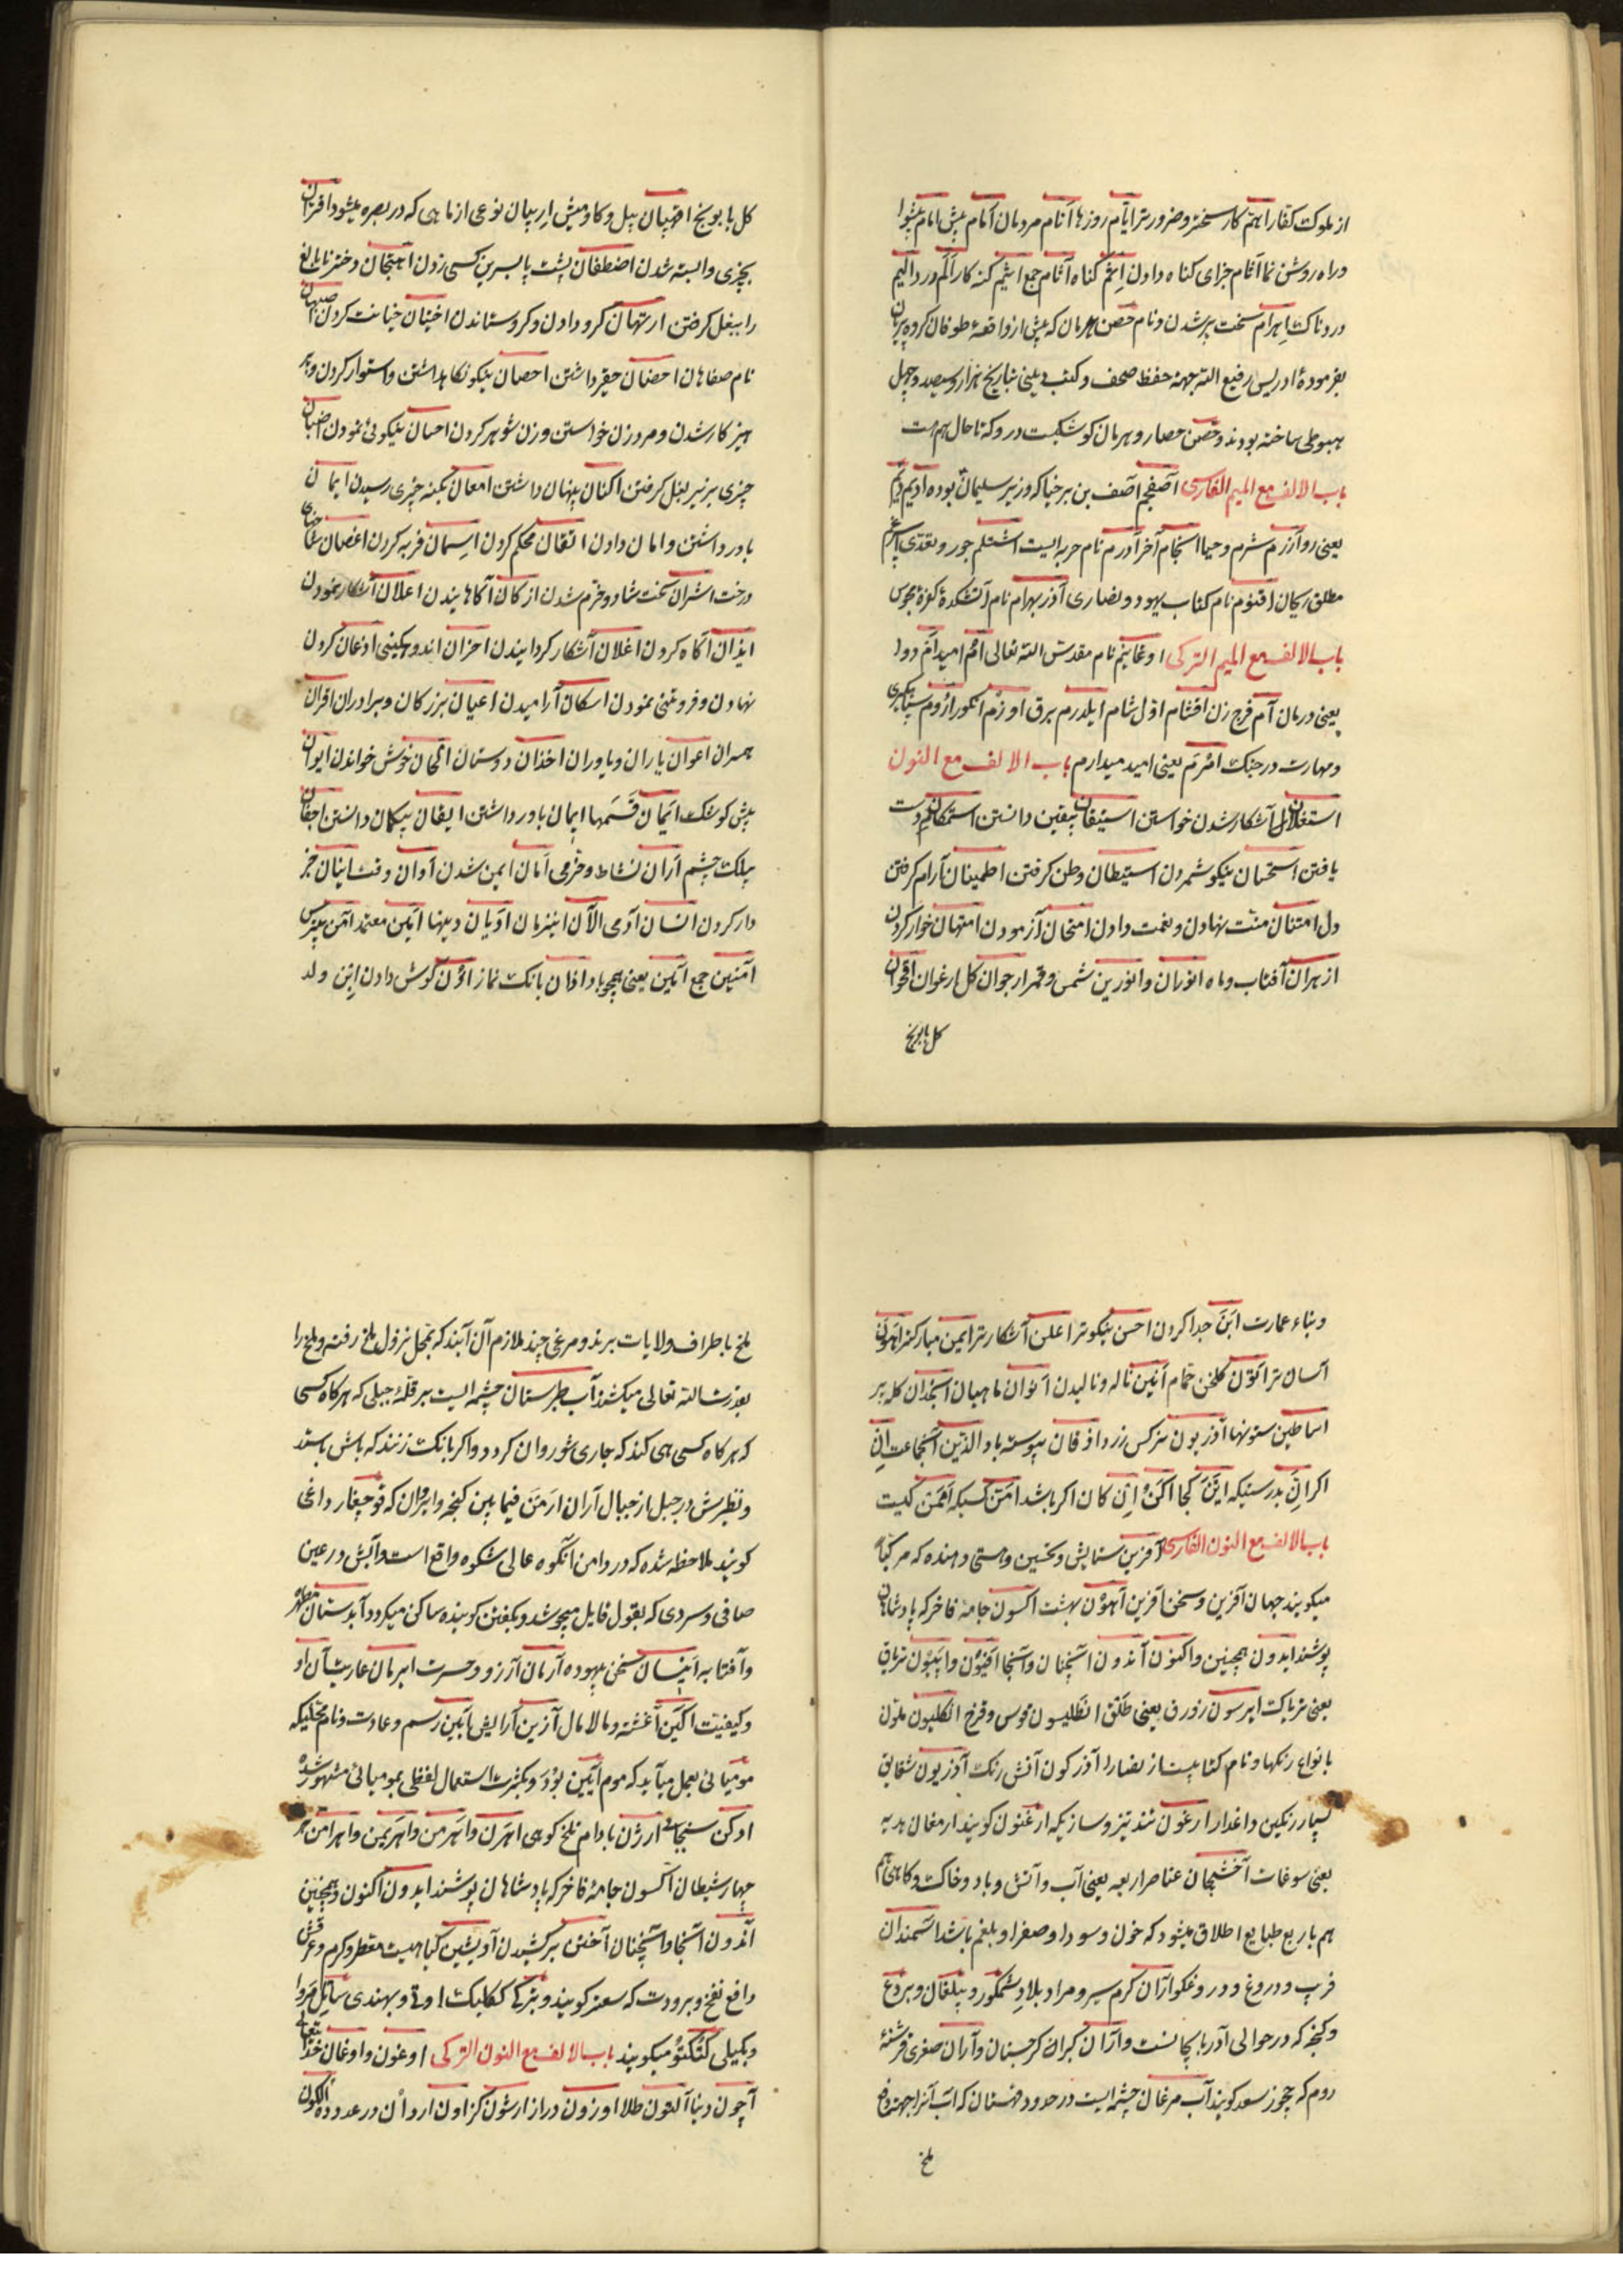 از ملوک کفار اهم کار سخت و ضرورتر ایام روزها انام مردمان امام پیش امام پیشوا
و راه روشن نما آثام جزای کناه دادن اثم کناه آثام جمع اثیم کنه کار الم درد الیم
دردناک اهرام سخت پیر شدن و نام حصن هرمان که پیش از واقعهٔ طوفان کروه
بفرمودهٔ ادریس رفیع الله بجهة حفظ صحف و کتب یعنی بتاریخ هزار و سیصد و چهل
هبوطی ساخته بودند و حصن حصار و هرمان کوشکیست در و که تا حال هم هست
باب الالف مع المیم الفارسی آصفجم آصف بن برخیا که وزیر سلیمان بوده ادیم
یعنی رو آزرم شرم و حیا انجام آخر آورم نام حربه ایست اشتلم جور و تعدی
مطلق ریحان اقنوم نام کتاب یهود و نصاری آذر بهرام نام آتشکدهٔ کفرهٔ مجوس
باب الالف مع المیم الترکی اوغانیم نام مقدس الله تعالی ام امید ام دوا
یعنی درمان آم فرج زن اقشام اول شام ایلدرم برق اوزم انکور
و مهارت در جنک یعنی امید میدارم باب الالف مع النون
استعلان آشکار شدن خواستن استیقان بیقین دانستن استمکان دست
یافتن استحسان نیکو شمردن استیطان وطن کرفتن اطمینان آرام کرفتن
دل امتنان منت نهادن و نعمت دادن امتحان آزمودن امتهان خوار کردن
ازهران آفتاب و ماه انوران و انورین شمس و قمر ارجوان کل ارغوان اقحوان
کل بابونج
کل بابونج پیل و کاومیش اربیان نوعی از ماهی که در بصره میشود اقتران
بچیزی وابسته شدن اضطفان پشت پا بسرین کسی زدن اهتجان دختر نابالغ
را ببغل کرفتن ارتهان کرو دادن و کرو ستاندن اختیان خیانت کردن اصبهان
نام صفاهان حقیر داشتن احصان نیکو نکاهداشتن و استوار کردن و پر
هیز کار شدن و مرد زن خواستن و زن شوهر کردن احسان نیکوئی نمودن اضبان
چیزی بزیر بغل کرفتن اکنان پنهان داشتن امعان بکنه چیزی رسیدن ایمان
باور داشتن و امان دادن اتقان محکم کردن اسمان فربه کردن اغصان
درخت اشران سخت شاد و خرم شدن ازکان آکاهانیدن اعلان آشکار نمودن
ایذان آکاه کردن اعلان آشکار کردانیدن احزان اندوهکینی اذعان کردن
نهادن و فروتنی نمودن اسکان آرامیدن اعیان بزرکان و برادران اقران
همسران اعوان یاران و یاوران اخذان دوستان الحان خوش خواندن ایوان
پیش کوشک ایمان قسمها ایمان باور داشتن ایقان بیکمان دانستن اجفان
پلک چشم آران نشاط و خرمی امان ایمن شدن اوان وقت اتیان خبر
دار کردن انسان آدمی الآن این زمان ادیان دینها امین معتمد
آمنین جمع آمین یعنی همچو باد اذان بانک نماز اذن کوش دادن ابن ولد
و بناء عمارت ابن جدا کردن احسن نیکوتر اعلن آشکارتر ایمن مبارکتر اهون
آسانتر اتون کلخن حمام انین ناله و نالیدن
اساطین ستونها آذریون نرکس زرد بپیوسته باد الذین آنجماعت ان
اکر ان بدرستیکه این کجا ان کان اکر باشد امن کسیکه
باب الالف مع النون الفارسی آفرین ستایش و تحسین و هستی دهنده که مرکبا
میکویند جهان آفرین و سخن آفرین بهشت اکسون جامهٔ فاخر که پادشاهان
پوشند ایدون همچنین و اکنون آندون آنچنان و آنجا افیون و اپیون تریاق
یعنی تریاک ایرسون زورق یعنی طلق انطلیسون قوس و قزح انکلیون ملون
بانواع رنکها و نام کتابیست از نصارا آذرکون آتش رنک آذریون شقایق
بسیار رنکین داغدار ارغون تند تیز و سازیکه ارغنون کویند ارمغان هدیه
یعنی سوغات آخشیجان عناصر اربعه یعنی آب و آتش و باد و خاک و کاهی
هم باربع طبایع اطلاق میشود که خون و سودا و صفرا و بلغم باشد
فریب و دروغ و دروغکو ارّان کرم سیر و مراد بلاد شمکور و بیلقان و بردع
و کنجه که در حوالی آذربایجانست و ارّان کبران کرجستان و آران صغری
روم که چوز سعد کویند آب مرغان چشمه ایست در حدود قهستان که آب آنرا بجهت دفع
ملخ
ملخ باطراف ولایات برند و مرغی چند ملازم آن آیند که بمحل نزول ملخ رفته و ملخ را
بقدرت الله تعالی میکشند آب طبرستان چشمه ایست بر قلهٔ جبلی که هر کاه کسی
که هر کاه کسی هی کند که جاری شو روان کردد و اکر بانک زنند که باش باستد
و نظیرش در جبل از جبال آران ارمن فیمابین کنجه و ایروان که قوچغار داغی
کویند ملاحظه شده که در دامن آنکوه عالی شکوه واقع است و آبش در عین
صافی و سردی که بقول قایل میجوشد و بکفتن کوینده ساکن میکردد آبدستان
و آفتابه اینسان سخن بیهوده آرمان آرزو و حسرت ایرمان عاریت آن او
و کیفیت آکین آغشته و مالامال آزین آرایش آیین رسم و عادت و نام محلیکه
مومیائی بعمل میآید که موم آیین بود و بکثرت استعمال لفظی بمومیائی مشهور شده
ارژن بادام تلخ کوهی اهرن و اهرمن و اهریمن و اهرامن هر
چهار شیطان اکسون جامهٔ فاخر که پادشاهان پوشند ایدون اکنون و همچنین
آندون آنجا و آنچنان آختن برکشیدن آویشن کیاهیست معطر و کرم و
دافع نفخ و برودت که سعتر کویند و بترکی ککلیک اوتی و بهندی
و بکیلی میکویند باب الالف مع النون الترکی اوغون و اوغان
آچون دنیا آلتون طلا اوزون دراز ارشون کز اون